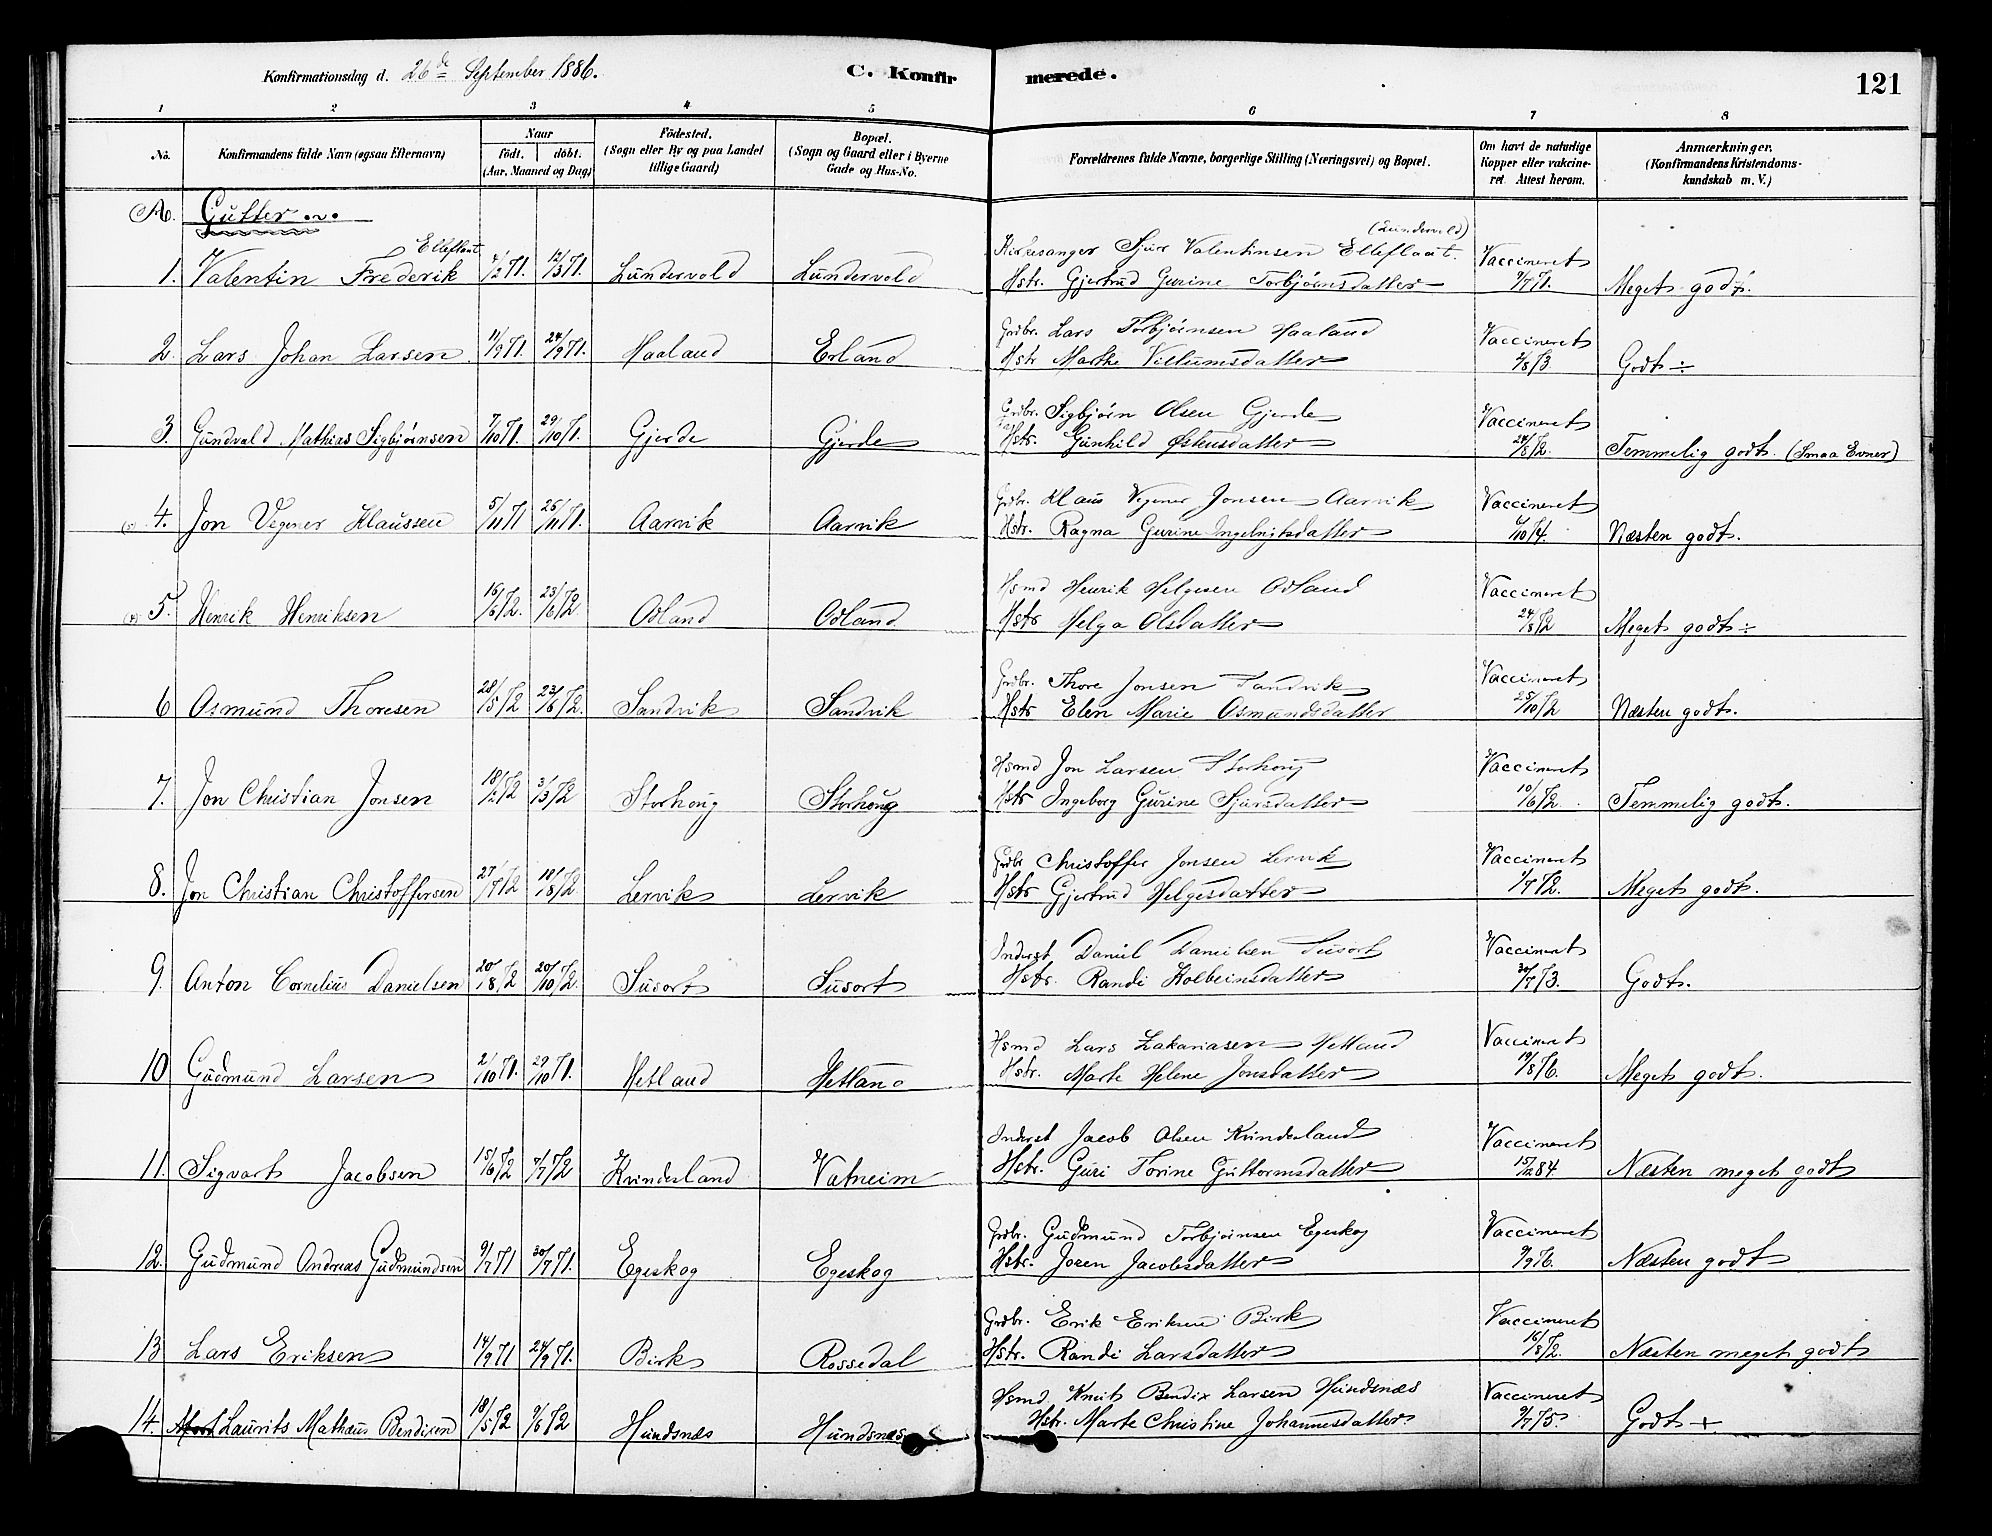 Konfirmationsdag d. 26de September 1886. C. Konfirmerede. 121
1 2 3 4 5 6 7 8
No. Konfirmandens fulde Navn (ogsaa Efternavn) Naar født. døbt. (Aar, Maaned og Dag) Fødested. (Sogn eller By og paa Landet tillige Gaard) Bopæl. (Sogn og Gaard eller i Byerne Gade og Hus-No. Forældrenes fulde Navne, borgerlige Stilling (Næringsvei) og Bopæl. Om havt de naturlige Kopper eller vakcineret. Attest herom. Anmærkninger. (Konfirmandens Kristendomskundskab m. V.)
A. Gutter
Elleflaat (Lundervold)
Kirkesanger Sjur Valentinsen Elleflaat. Vaccineret
1. Valentin Frederik 4/2 71. 12/3 71. Lundervold Lundervold Hstr. Gjertrud Gurine Torbjørnsdatter 9/7 71. Meget godt
Grdbr. Lars Torbjørnsen Haaland Vaccineret
2. Lars Johan Larsen 11/9 71. 24/9 71. Haaland Erland Hstr Marthe Villumsdatter 2/8 73. Godt ÷
Grdbr. Sigbjørn Olsen Gjerde Vaccineret
3. Gundvald Mathias Sigbjørnsen 7/10 71. 29/10 71. Gjerde Gjerde Hstr. Gunhild Østensdatter 24/8 72. Temmelig godt. (Smaa Evner)
Grdbr. Klaus Vegner Jonsen Aarvik Vaccineret
4. Jon Vegner Klaussen 5/11 71 26/11 71. Aarvik Aarvik Hstr. Ragna Gurine 6/10 74. Næsten godt.
Hsmd Henrik Helgesen Odland Vaccineret
5. Henrik Henriksen 16/6 72. 23/6 72 Odland Odland Hstr Helga Olsdatter 24/8 72 Meget godt ÷
Grdbr. Thore Jonsen Sandvik Vaccineret
6 Osmund Thoresen 28/5 72 23/6 72. Sandvik Sandvik Hstr Elen Marie Osmundsdatter 25/10 72 Næsten godt.
Hsmd Jon Larsen Storhoug Vaccineret
7. Jon Christian Jonsen 18/2 72 3/3 72 Storhoug Storhoug Hstr Ingeborg Gurine Sjursdatter 10/6 72. Temmelig godt.
Grdbr Christoffer Jonsen Lervik Vaccineret
8. Jon Christian Christoffersen 27/7 72 18/8 72 Lervik Lervik Hstr Gjertrud Helgesdatter 1/7 72. Meget godt.
Inderst Daniel Danielsen Susort Vaccineret
9. Anton Cornelius Danielsen 20/8 72 20/10 72. Susort Susort Hstr. Randi Kolbeinsdatter 30/7 73. Godt.
Hsmd Lars Zakariasen Hetland Vaccineret
10 Gudmund Larsen 2/10 71. 29/10 71. Hetland Hetland Hstr. Marte Helene Jonsdatter 19/8 76. Meget godt.
Inderst Jacob Olsen Kvinderland Vaccineret
11. Sigvart Jacobsen 15/6 72 7/7 72 Kvinderland Vatneim Hstr. Guri Torine Guttormsdatter 15/12 84 Næsten meget godt
Grdbr. Gudmund Torbjørnsen Egeskog Vaccineret
12. Gudmund Andreas Gudmundsen 9/7 71 30/7 71. Egeskog Egeskog Hstr. Joren Jacobsdatter 9/9 76. Næsten godt
Grdbr. Erik Eriksen Birk Vaccineret
13 Lars Eriksen 14/9 71 24/9 71. Birk Rossedal Hstr. Randi Larsdatter 16/8 72. Næsten meget godt
Hsmd Knut Bendix Larsen Hundsnæs Vaccineret
14. Laurits Mathæus Bendixen 18/5 72 9/6 72 Hundsnæs Hundsnæs Hstr. Marte Christine Johannesdatter. 9/7 75. Godt +